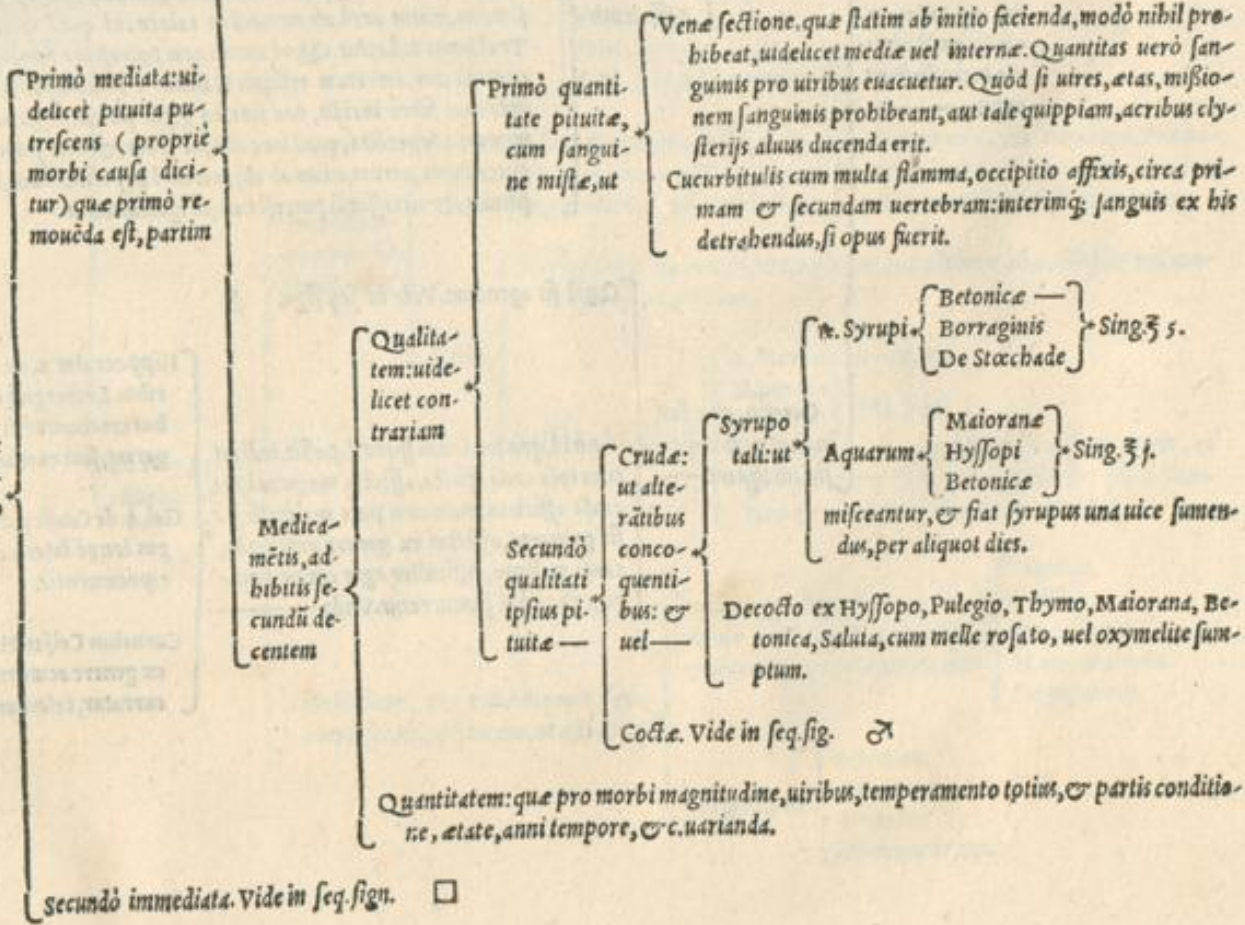 Primò mediata: ui-
delicet pituita pu-
treſcens (propriè
morbi cauſa dici-
tur) quæ primò re-
mouẽda eſt, partim
Medica-
mẽtis, ad-
hibitis ſe-
cundũ de-
centem
Qualita-
tem: uide-
licet con-
trariam
Primò quanti-
tate pituitæ,
cum ſangui-
ne miſtæ, ut
Venæ ſectione. quæ ſtatim ab initio facienda, modò nihil pro-
hibeat, uidelicet mediæ uel internæ. Quantitas uerò ſan-
guinis pro uiribus euacuetur. Quòd ſi uires, ætas, miſsio-
nem ſanguinis prohibeant, aut tale quippiam, acribus cly-
ſterijs aluus ducenda erit.
Cucurbitulis cum multa flamma, occipitio affixis, circa pri-
mam & ſecundam uertebram: interimq́; ſanguis ex his
detrahendus, ſi opus fuerit.
Secundò
qualitati
ipſius pi-
tuitæ —
Crudæ:
ut alte-
rãtibus
conco-
quenti-
bus: &
uel —
Syrupo
tali: ut
℞. Syrupi
Betonicæ —
Borraginis
De Stœchade
Sing. ℥ s.
Aquarum
Maioranæ
Hyſſopi
Betonicæ
Sing. ℥ j.
miſceantur, & fiat ſyrupus una uice ſumen-
dus, per aliquot dies.
Decocto ex Hyſſopo, Pulegio, Thymo, Maiorana, Be-
tonica, Saluia, cum melle roſato, uel oxymelite ſum-
ptum.
Coctæ. Vide in ſeq. ſig. ♂
Quantitatem: quæ pro morbi magnitudine, uiribus, temperamento totius, & partis conditio-
ne, ætate, anni tempore, & c. uarianda.
Secundò immediata. Vide in ſeq. ſign. □